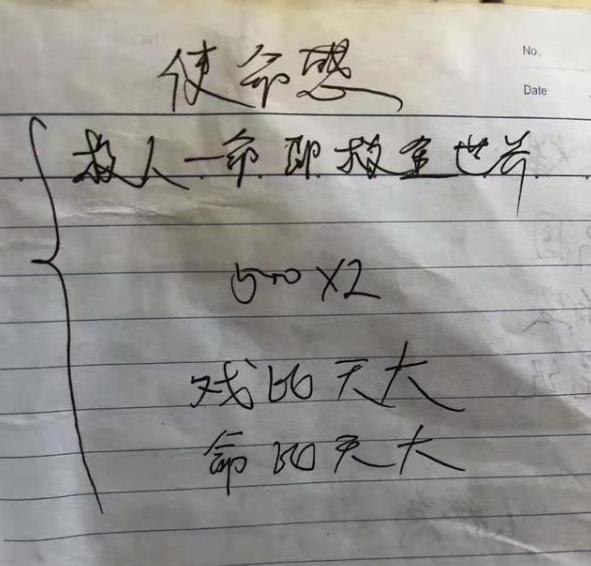 No.
Date
使命感
救人一命即救全世界
500×2
戏比天大
命比天大